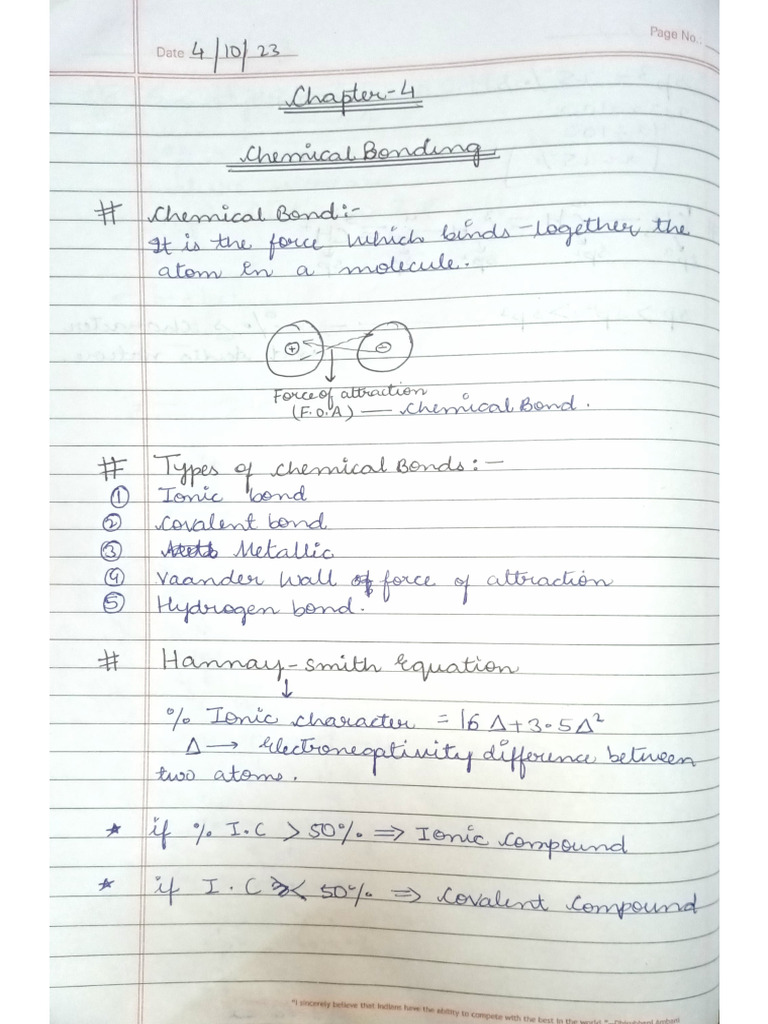 Page No.
Date 4/10/23
Chapter-4
Chemical Bonding
# Chemical Bond:-
It is the force which binds together the
atom in a molecule.
+ −
Force of attraction
(F.O.A) — Chemical Bond.
# Types of Chemical Bonds:-
① Ionic bond
② Covalent bond
③ Metallic
④ Vaander Wall force of attraction
⑤ Hydrogen bond.
# Hannay-Smith Equation
↓
% Ionic character = 16 Δ + 3.5Δ²
Δ → Electronegativity difference between
two atoms.
* if % I.C > 50% ⇒ Ionic Compound
* if I.C < 50% ⇒ Covalent Compound
"I sincerely believe that Indians have the ability to compete with the best in the world." - Dhirubhai Ambani